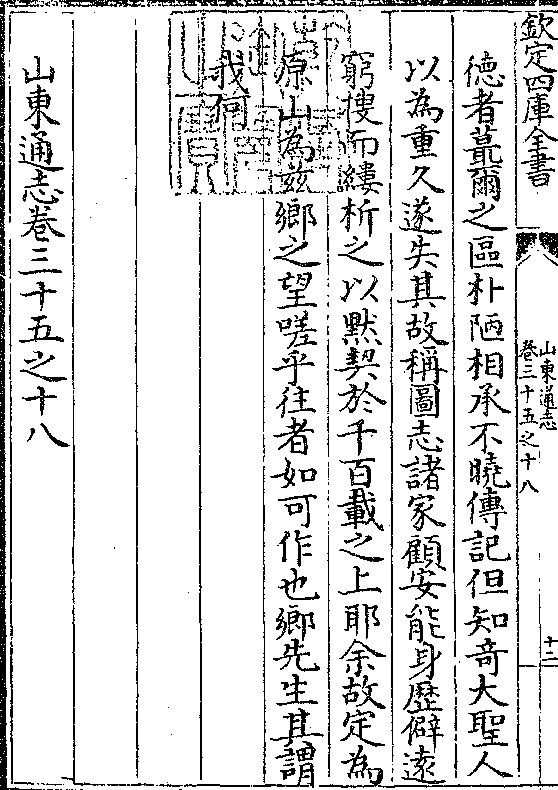 欽定四庫全書
山東通志
卷三十五之十八
十二
德者蕞爾之區朴陋相承不曉傳記但知竒大聖人
以為重久遂失其故稱圖志諸家顧安能身歴僻逺
窮搜而縷析之以黙契於千百載之上耶余故定為
原山為兹鄉之望嗟乎往者如可作也鄉先生其謂
我何
山東通志卷三十五之十八